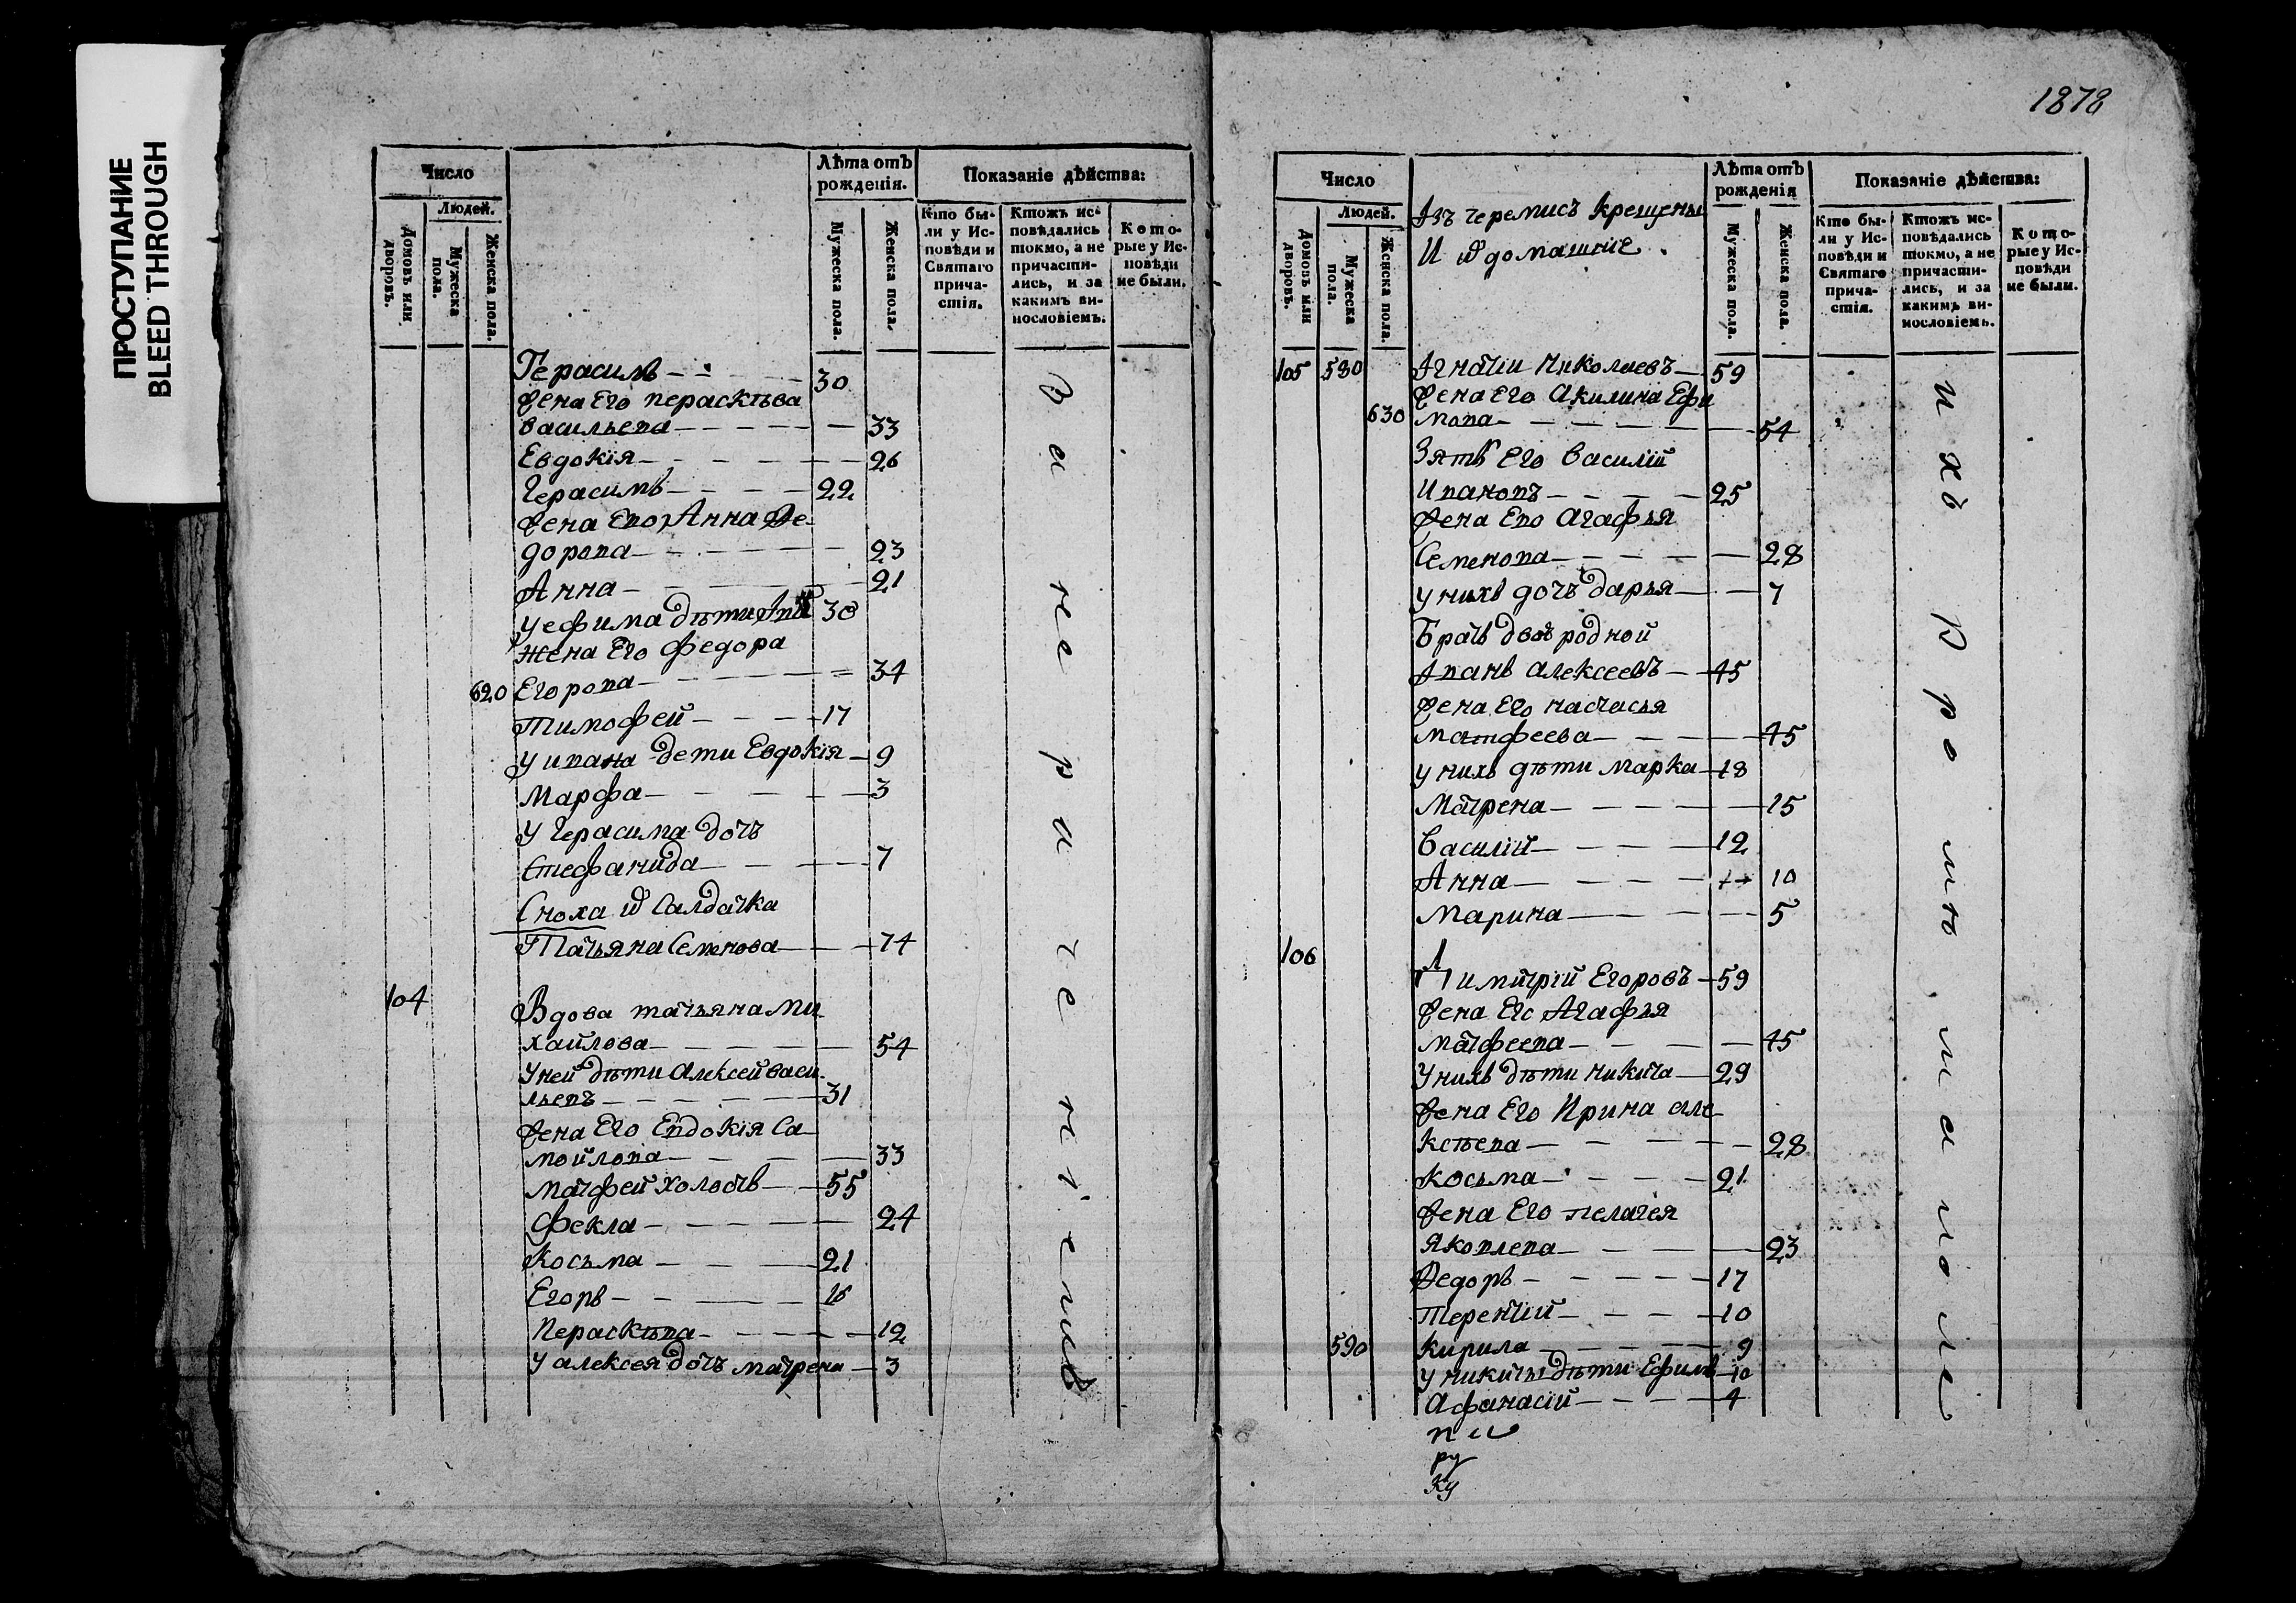 ПРОСТУПАНИЕ
BLEED THROUGH
1878
Число
Людей.
Домовъ или дворовъ.
Мужеска пола.
Женска пола.
Лѣта отъ
рожденія.
Мужеска пола.
Женска пола.
Показаніе дѣйства:
Кто бы-
ли у Ис-
повѣди и
Святаго
прича-
стія.
Ктожъ ис-
повѣдались
токмо, а не
причасти-
лись, и за
какимъ ви-
нословіемъ.
Кото-
рые у Ис-
повѣди
не были.
Герасимъ 30
Жена Его Пераскѣва
Васильева 33
Евдокія 26
Герасимъ 22
Жена Его Анна Фе-
дорова 23
Анна 21
У ефима дѣти 30
Жена Его Федора
620 Егорова 34
Тимофей 17
У ивана дети Евдокія 9
Марфа 3
У Герасима дочь
Стефанида 7
Сноха Солдатка
Татьяна Семенова 74
104 Вдова татьяна Ми-
хайлова 54
У ней дѣти Алексей васи-
льевъ 31
Жена Его Евдокія Са-
мойлова 33
Матфей холостъ 55
Фекла 24
Косьма 21
Егоръ 16
Пераскѣва 12
У алексея дочь матрена 3
за не
р а
ч е
н і е мъ
Число
Людей.
Домовъ или дворовъ.
Мужеска пола.
Женска пола.
Изъ черемисъ крещены
И домашніе
Лѣта отъ
рожденія
Мужеска пола.
Женска пола.
Показаніе дѣйства:
Кто бы-
ли у Ис-
повѣди и
Святаго
прича-
стія.
Ктожъ ис-
повѣдались
токмо, а не
причасти-
лись, и за
какимъ ви-
нословіемъ.
Кото-
рые у Ис-
повѣди
не были.
105 580 Игнатіи Николаевъ 59
Жена Его Акилина Ефи
630 мова 54
Зять Его Василій
Ивановъ 25
Жена Его Агафья
Семенова 28
У нихъ дочь дарья 7
Братъ двоюродной
Иванъ алексеевъ 45
Жена Его настасья
Матфеева 45
У нихъ дѣти Марка 18
Матрена 15
Василій 12
Анна 10
Марина 5
106 Димитрій Егоровъ 59
Жена Его Агафья
Матфеева 45
У нихъ дѣти никита 29
Жена Его Ирина але-
ксѣева 28
Косьма 21
Жена Его пелагея
Яковлева 23
Федоръ 17
Терентій 10
590 Кирила 9
У никиты дѣти Ефимъ 10
Афанасій 4
ихъ